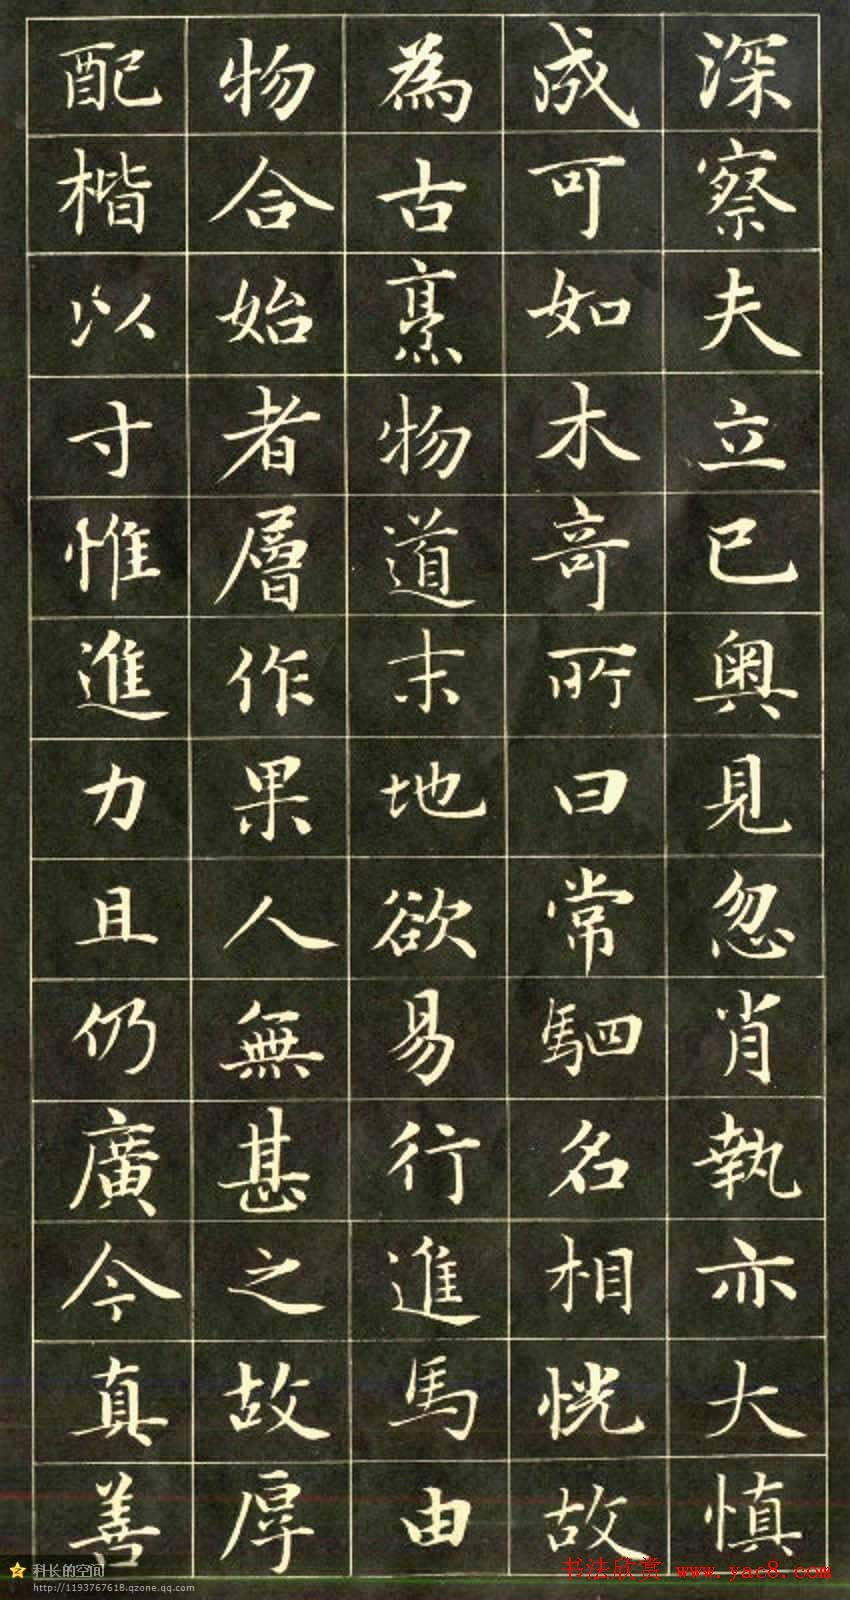 深察夫立已奥見忽肖執亦大慎
成可如木奇所曰常駟名相恍故
為古物道末地欲易行進馬由
物合始者層作果人無甚之故厚
配楷以寸惟進力且仍廣今真善
书法欣赏 www.yac8.com
科长的空间
http://1193767618.qzone.qq.com